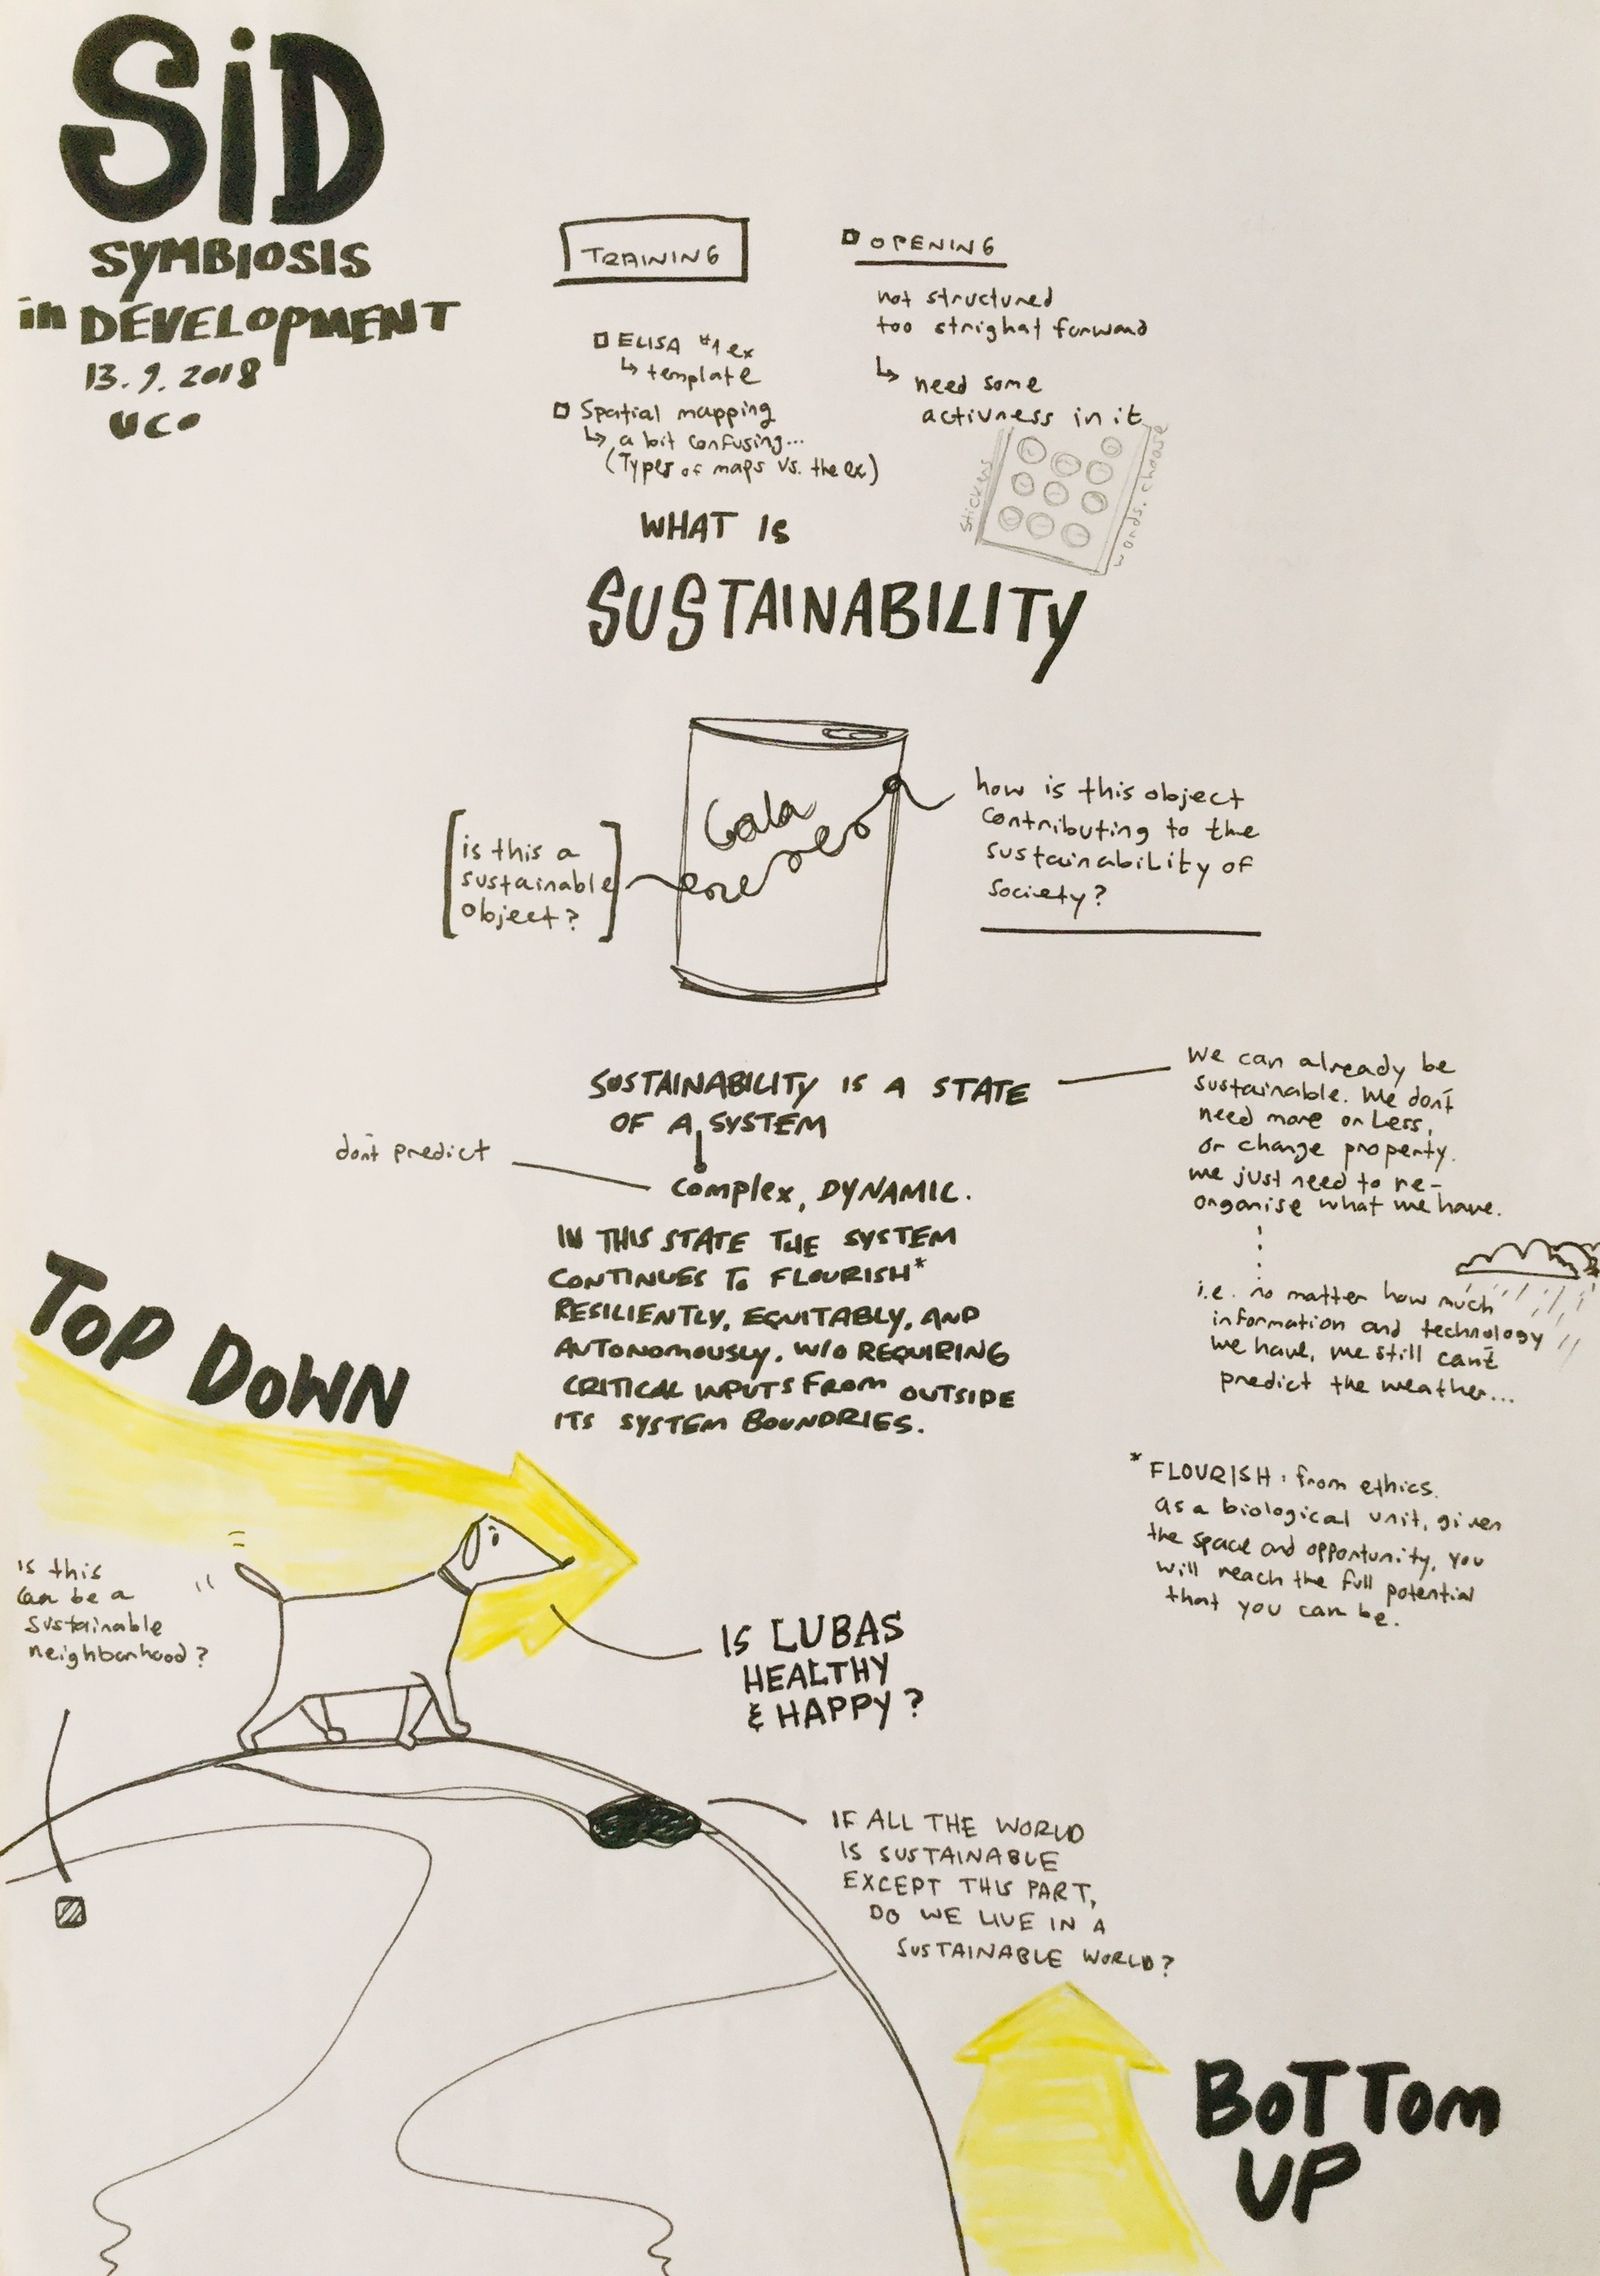 SiD
SYMBIOSIS
in DEVELOPMENT
13.9.2018
UCO
TRAINING
ELISA #1 ex
↳ template
Spatial mapping
↳ a bit confusing...
(Types of maps vs. the ex)
OPENING
not structured
too strighat forward
↳ need some
activness in it
stickers
words. choose
WHAT IS
SUSTAINABILITY
is this a
sustainable
object?
how is this object
contributing to the
sustainability of
society?
SUSTAINABILITY IS A STATE
OF A SYSTEM
don't predict
complex, DYNAMIC.
IN THIS STATE THE SYSTEM
CONTINUES To FLOURISH*
RESILIENTLY, EQUITABLY, AND
AUTONOMOUSLY, W/O REQUIRING
CRITICAL INPUTS FROM OUTSIDE
ITS SYSTEM BOUNDRIES.
We can already be
sustainable. We don't
need more or Less,
or change property.
we just need to re-
organise what we have.
i.e. no matter how much
information and technology
we have, we still can't
predict the weather...
* FLOURISH: from ethics.
as a biological unit, given
the space and opportunity, you
will reach the full potential
that you can be.
TOP DOWN
is this
can be a
sustainable
neighborhood?
IS LUBAS
HEALTHY
& HAPPY?
IF ALL THE WORLD
IS SUSTAINABLE
EXCEPT THIS PART,
DO WE LIVE IN A
SUSTAINABLE WORLD?
BOTTOM
UP